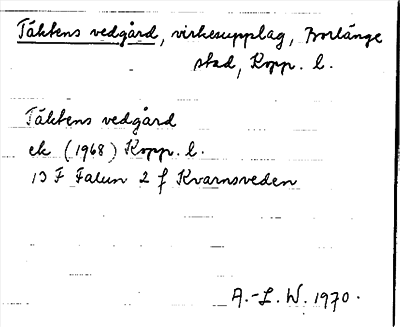 Täktens vedgård, virkesupplag, Borlänge
stad, Kopp. l.
Täktens vedgård
ek (1968) Kopp. l.
13 F Falun 2 f Kvarnsveden
A.-L. W. 1970.